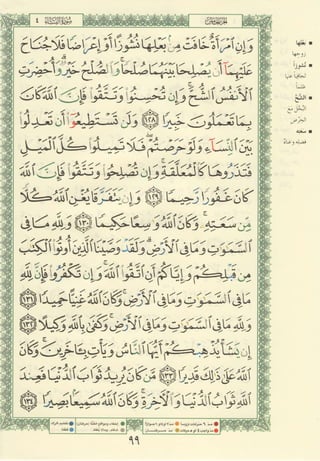 ٤
سورة النساء
الجزء الخامس
وَإِنِ امْرَأَةٌ خَافَتْ مِنْ بَعْلِهَا نُشُوزًا أَوْ إِعْرَاضًا فَلَا جُنَاحَ
عَلَيْهِمَا أَنْ يُصْلِحَا بَيْنَهُمَا صُلْحًا وَالصُّلْحُ خَيْرٌ وَأُحْضِرَتِ
الْأَنْفُسُ الشُّحَّ وَإِنْ تُحْسِنُوا وَتَتَّقُوا فَإِنَّ اللَّهَ كَانَ
بِمَا تَعْمَلُونَ خَبِيرًا ١٢٨ وَلَنْ تَسْتَطِيعُوا أَنْ تَعْدِلُوا
بَيْنَ النِّسَاءِ وَلَوْ حَرَصْتُمْ فَلَا تَمِيلُوا كُلَّ الْمَيْلِ
فَتَذَرُوهَا كَالْمُعَلَّقَةِ وَإِنْ تُصْلِحُوا وَتَتَّقُوا فَإِنَّ اللَّهَ
كَانَ غَفُورًا رَحِيمًا ١٢٩ وَإِنْ يَتَفَرَّقَا يُغْنِ اللَّهُ كُلًّا
مِنْ سَعَتِهِ وَكَانَ اللَّهُ وَاسِعًا حَكِيمًا ١٣٠ وَلِلَّهِ مَا فِي
السَّمَاوَاتِ وَمَا فِي الْأَرْضِ وَلَقَدْ وَصَّيْنَا الَّذِينَ أُوتُوا الْكِتَابَ
مِنْ قَبْلِكُمْ وَإِيَّاكُمْ أَنِ اتَّقُوا اللَّهَ وَإِنْ تَكْفُرُوا فَإِنَّ لِلَّهِ
مَا فِي السَّمَاوَاتِ وَمَا فِي الْأَرْضِ وَكَانَ اللَّهُ غَنِيًّا حَمِيدًا ١٣١
وَلِلَّهِ مَا فِي السَّمَاوَاتِ وَمَا فِي الْأَرْضِ وَكَفَى بِاللَّهِ وَكِيلًا ١٣٢
إِنْ يَشَأْ يُذْهِبْكُمْ أَيُّهَا النَّاسُ وَيَأْتِ بِآخَرِينَ وَكَانَ
اللَّهُ عَلَى ذَلِكَ قَدِيرًا ١٣٣ مَنْ كَانَ يُرِيدُ ثَوَابَ الدُّنْيَا فَعِنْدَ
اللَّهِ ثَوَابُ الدُّنْيَا وَالْآخِرَةِ وَكَانَ اللَّهُ سَمِيعًا بَصِيرًا ١٣٤
بَعْلِهَا
زوجها
نُشُوزًا
الشُّحَّ
البخل مع
الحرص
سَعَتِهِ
فضله وغناه
٩٩